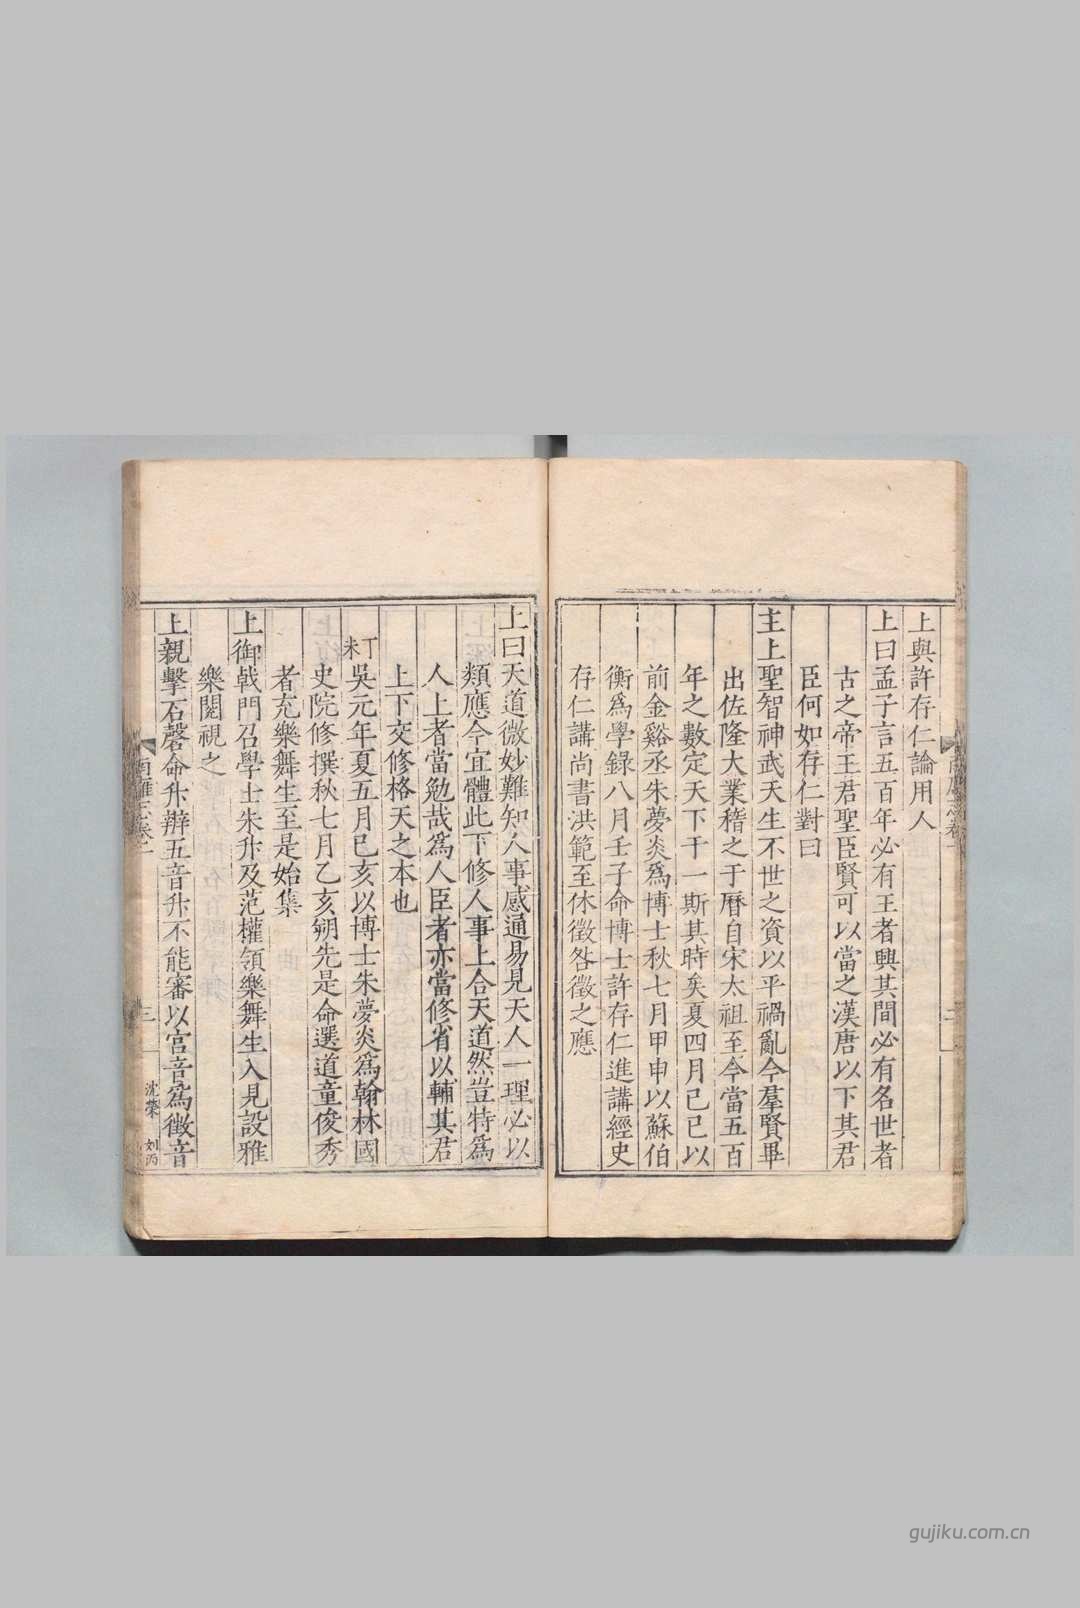 上與許存仁論用人
上曰孟子言五百年必有王者興其間必有名世者
古之帝王君聖臣賢可以當之漢唐以下其君
臣何如存仁對曰
主上聖智神武天生不世之資以平禍亂今羣賢畢
出佐隆大業稽之于曆自宋太祖至今當五百
年之數定天下于一斯其時矣夏四月己巳以
前金谿丞朱夢炎爲博士秋七月甲申以蘇伯
衡爲學錄八月壬子命博士許存仁進講經史
存仁講尚書洪範至休徵咎徵之應
上曰天道微妙難知人事感通易見天人一理必以
類應今宜體此下修人事上合天道然豈特爲
人上者當勉哉爲人臣者亦當修省以輔其君
上下交修格天之本也
丁未吳元年夏五月己亥以博士朱夢炎爲翰林國
史院修撰秋七月乙亥朔先是命選道童俊秀
者充樂舞生至是始集
上御戟門召學士朱升及范權領樂舞生入見設雅
樂閱視之
上親擊石磬命升辯五音升不能審以宮音爲徵音
南雍志卷一
三
沈榮 刘丙
gujiku.com.cn